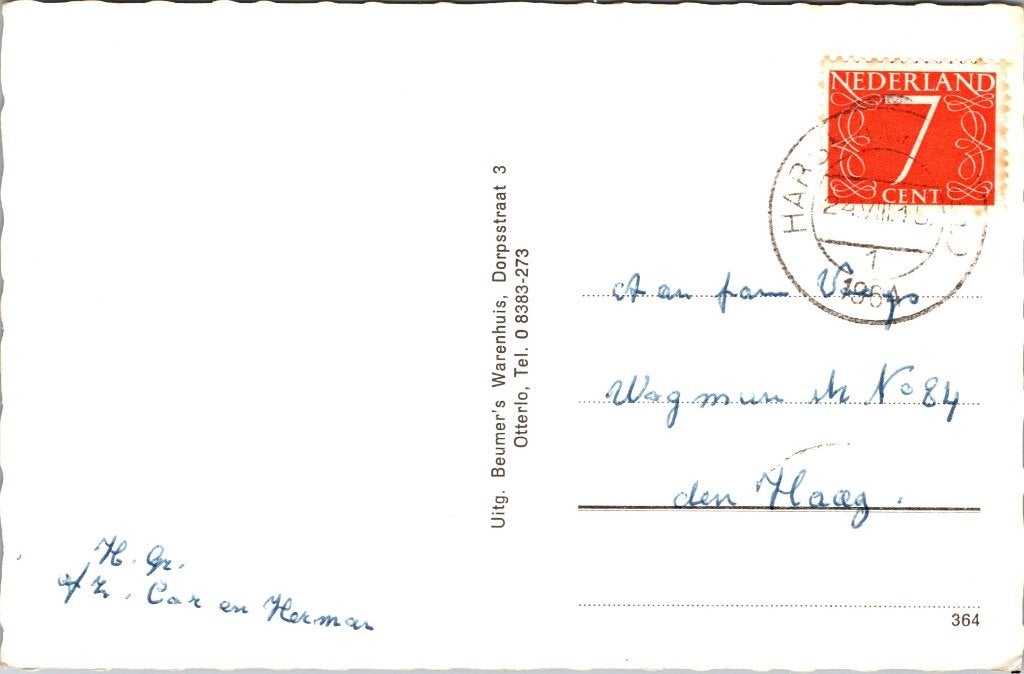 NEDERLAND
7
CENT
24.VIII.1
1
1964
Uitg. Beumer's Warenhuis, Dorpsstraat 3
Otterlo, Tel. 0 8383-273
Aan fam
No 84
den Haag.
H. Gr.
Cor en Herman
364